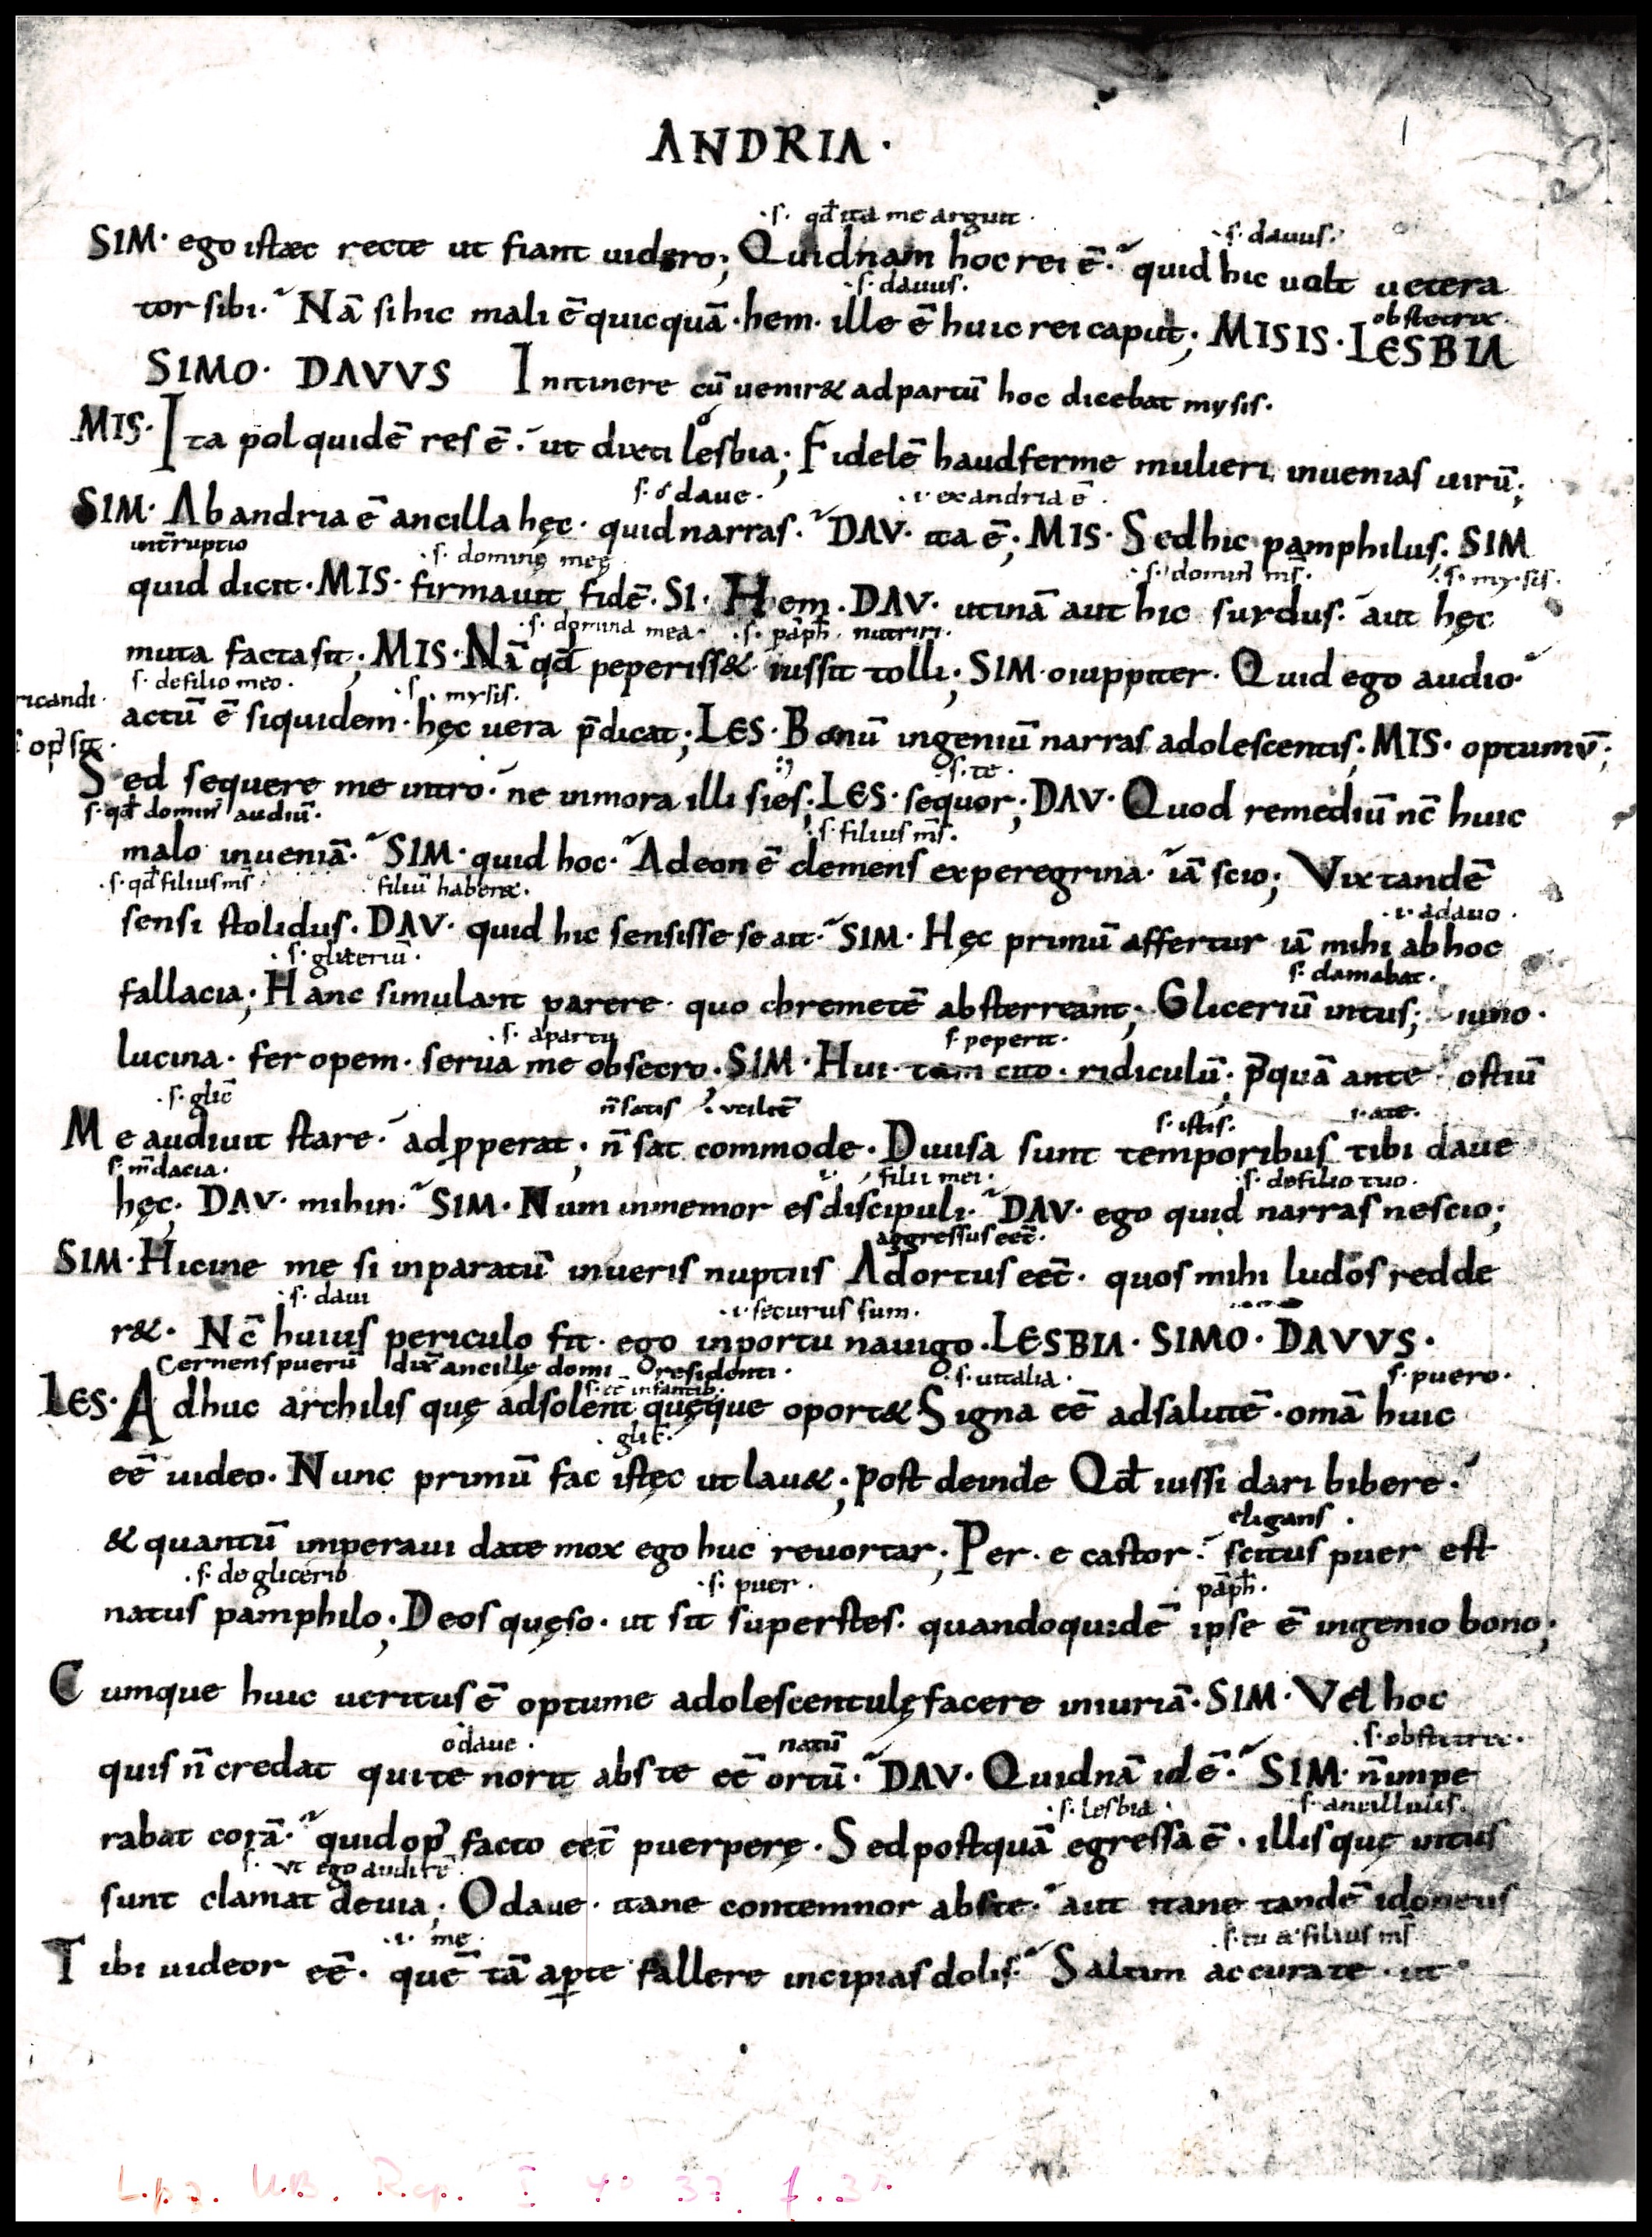 ANDRIA·
·s· qđ ita me arguit·
·s· dauus·
SIM· ego istæc recte ut fiant uidero; Quidnam hoc rei ē·᷉ quid hic uolt uetera
·s· dauus·
obstetrix·
tor sibi·᷉ Nā si hic mali ē quicquā· hem· ille ē huic rei caput; MISIS· LESBIA
SIMO· DAVVS Initinere cū uenir& ad partū hoc dicebat mysis·
ó
MIS· Ita pol quidē res ē·᷉ ut dixti lesbia; Fidelē haud ferme mulieri inuenias uirū;
s· ó daue· ·i· ex andria ē·
SIM· Ab andria ē ancilla hęc· quid narras·᷉ DAV· ita ē; MIS· Sed hic pamphilus; SIM
int̄ruptio ·s· dominę meę ·s· domin̄ ms̄· ·s· mysis·
quid dicit· MIS· firmauit fidē· SI· Hem· DAV· utinā aut hic surdus·᷉ aut hęc
·s· domina mea· ·s· pāph̄· nutriri·
muta facta sit; MIS· Nā qđ peperiss& iussit tolli; SIM· o iuppiter· Quid ego audio·᷉
ricandi·
s· de filio meo· ·s· mysis·
actū ē siquidem· hęc uera p̄dicat; LES· Bonū ingeniū narras adolescentis; MIS· optumū;
op̄ sit·
·s· te·
Sed sequere me intro·᷉ ne inmora illi sies; LES· sequor; DAV· Quod remediū nc̄ huic
s· qđ domin̄ audiū· ·s· filius ms̄·
malo inueniā·᷉ SIM· quid hoc·᷉ Adeon ē demens ex peregrina·᷉ iā scio; Vix tandē
·s· qđ filius ms̄· filiū haberet· ·i· a dauo·
sensi stolidus· DAV· quid hic sensisse se ait·᷉ SIM· Hęc primū affertur iā mihi ab hoc
·s· gliceriū· s· clamabat·
fallacia; Hanc simulant parere· quo chremetē absterreant; Gliceriū intus; iuno·
·s· a partu s· peperit·
lucina· fer opem· serua me obsecro· SIM· Hui· tam cito· ridiculū; p̄quā ante ostiū
·s· glic̄ n̄ satis utilit̄ s· istis· ·i· a te·
Me audiuit stare·᷉ adp̱perat; n̄ sat commode· Diuisa sunt temporibus tibi daue
s· m̄dacia· filii mei· ·s· de filio tuo·
hęc· DAV· mihin·᷉ SIM· Num inmemor es discipuli·᷉ DAV· ego quid narras nescio;
aggressus eēt·
SIM· Hicine me si inparatū inueris nuptiis Adortus eēt· quos mihi ludos redde
·s· daui ·i· securus sum·
r&· Nc̄ huius periculo fit· ego in portu nauigo· LESBIA· SIMO· DAVVS·
Cernens puerū dix̄ ancillę domi residenti· ·s· uitalia· s· puero·
s· eē infantib;
LES· Adhuc archilis quę adsolent quęque oport& Signa eē ad salutē· omā huic
·glic̄·
eē uideo· Nunc primū fac istęc ut lau&; post deinde Qđ iussi dari bibere·᷉
eligans·
& quantū imperaui date mox ego huc reuortar; Per· e castor·᷉ scitus puer est
·s· de glicerio ·s· puer· pāph̄·
natus pamphilo; Deos quęso· ut sit superstes· quandoquidē ipse ē ingenio bono;
Cumque huic ueritus ē optume adolescentulę facere iniuriā· SIM· Vel hoc
o daue· natū ·s· obstetrix·
quis n̄ credat qui te norit abs te eē ortū·᷉ DAV· Quidnā id ē·᷉ SIM· n̄ impe
·s· lesbia· s· ancillulis·
rabat corā·᷉ quid op̄ facto eēt puerperę· Sed postquā egressa ē· illis quę intus
s· ut ego audirē·
sunt clamat deuia; O daue· itane contemnor abs te·᷉ aut itane tandē idoneus
·i· me· ·s· tu & filius ms̄
Tibi uideor eē· quē tā aꝑte fallere incipias dolis·᷉ Saltim accurate· ut
Lpz. U.B. Rep. I 4° 37, f. 3r